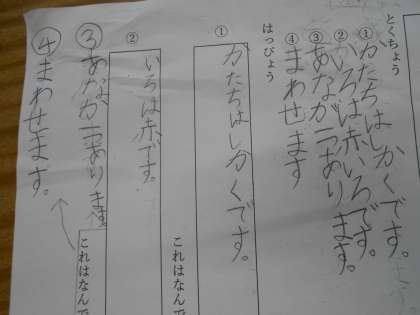 とくちょう
①かたちはしかくです。
②いろは赤いろです。
③あなが一つあります。
④まわせます
はっぴょう
①
かたちはしかくです。
これはなんで
②
いろは赤です。
これはなんで
③あなが一つあります。
④まわせます。